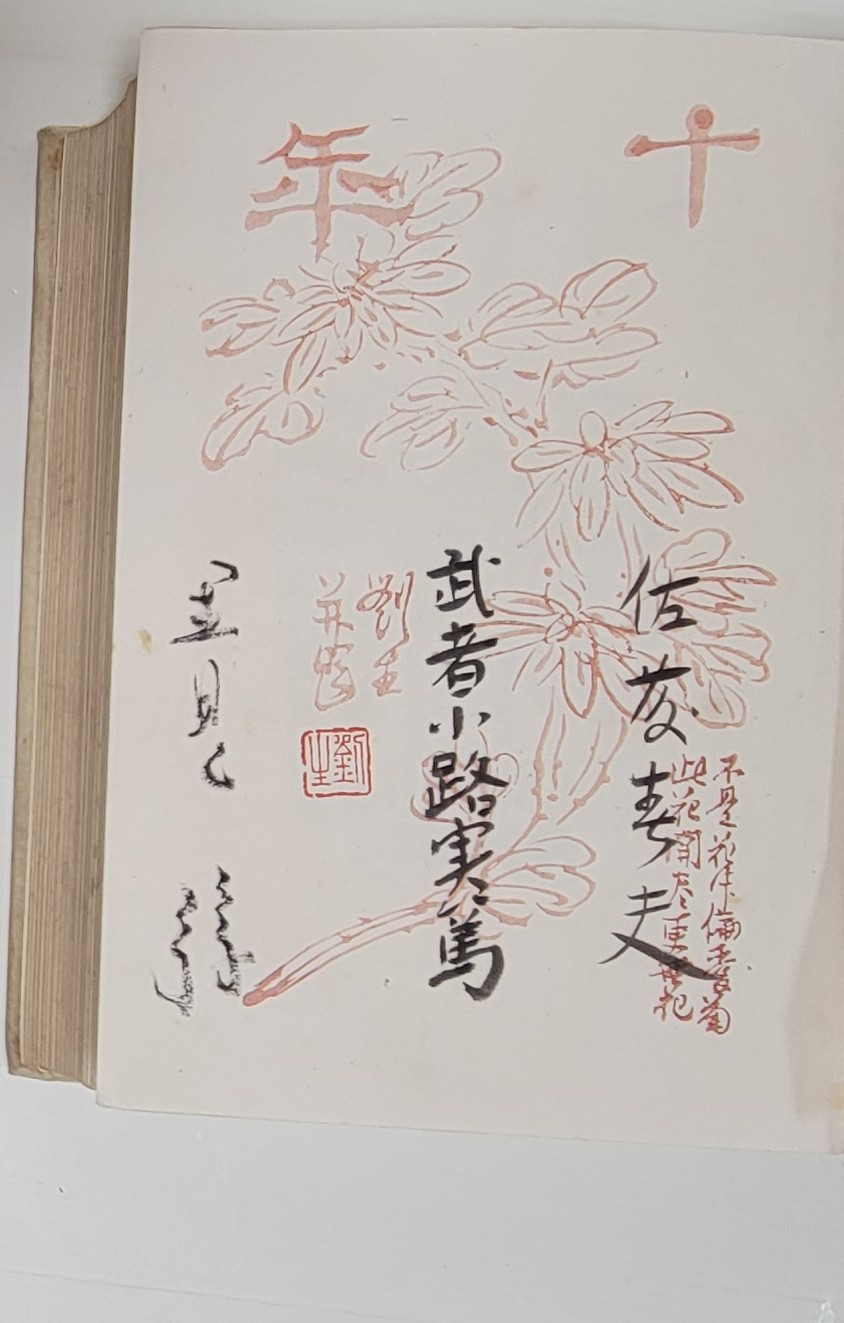 十年
不是花中偏愛菊
此花開尽更無花
佐藤春夫
武者小路実篤
劉生
劉生
里見弴